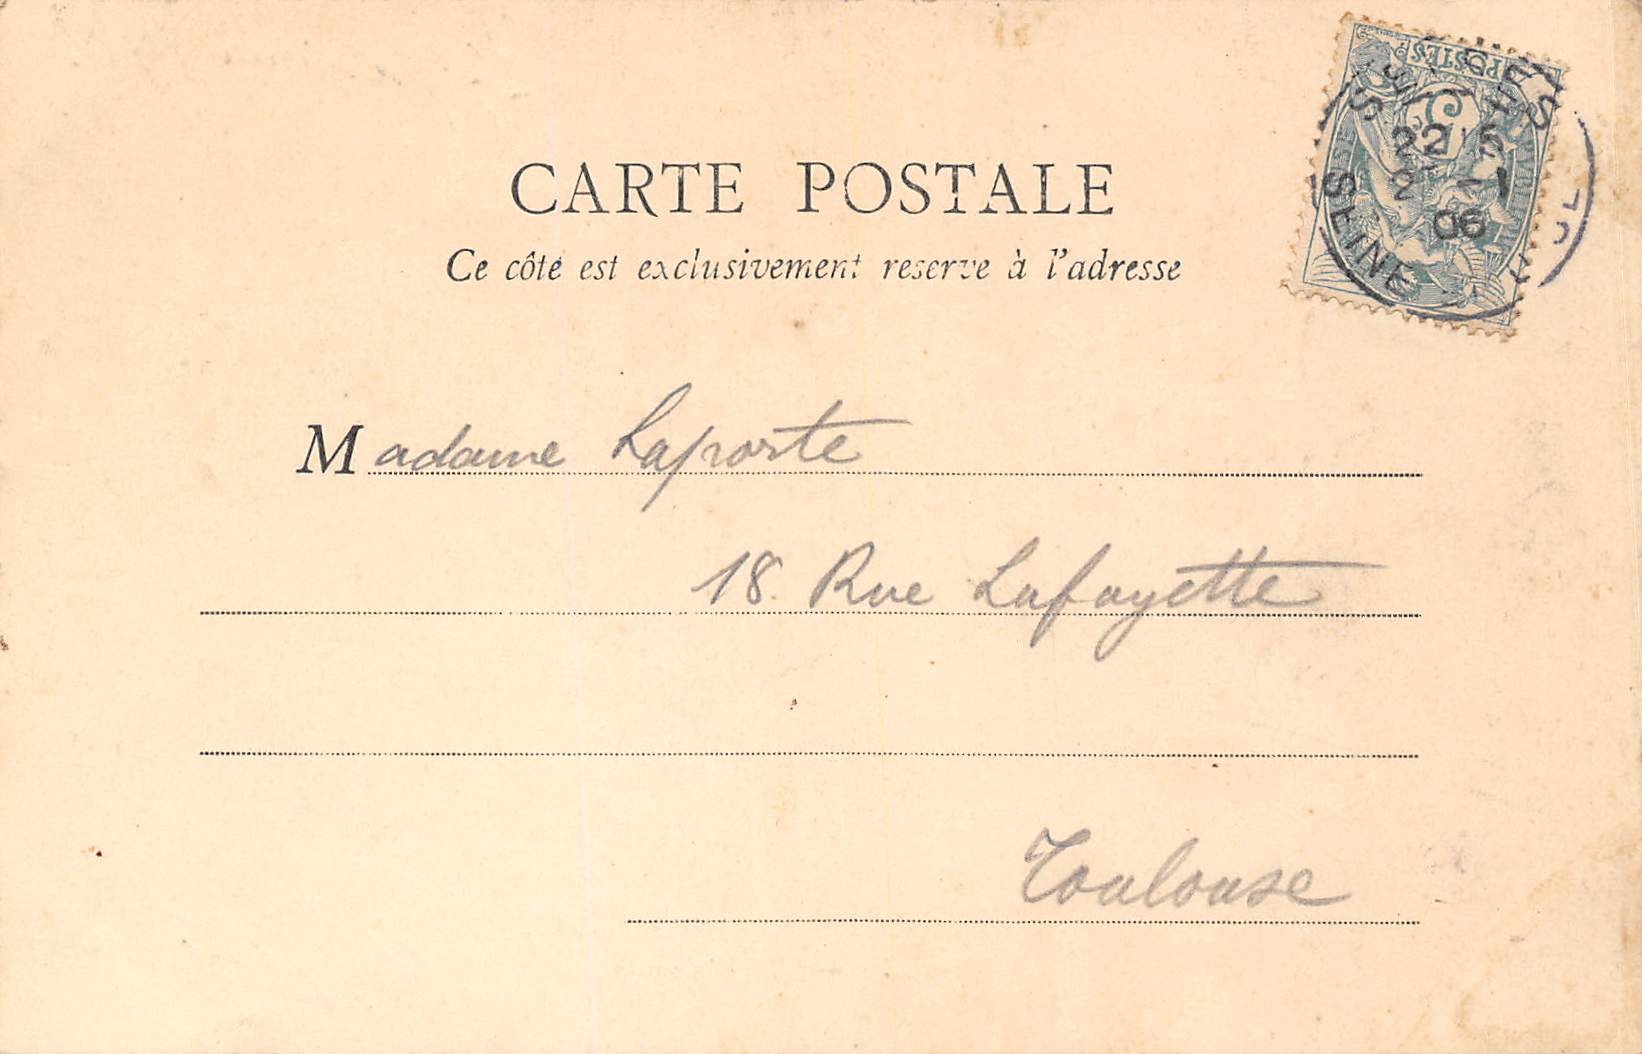 CARTE POSTALE
Ce côté est exclusivement reservé à l'adresse
Madame Laporte
18 Rue Lafayette
Toulouse
POSTES
5
22
2
06
SEINE